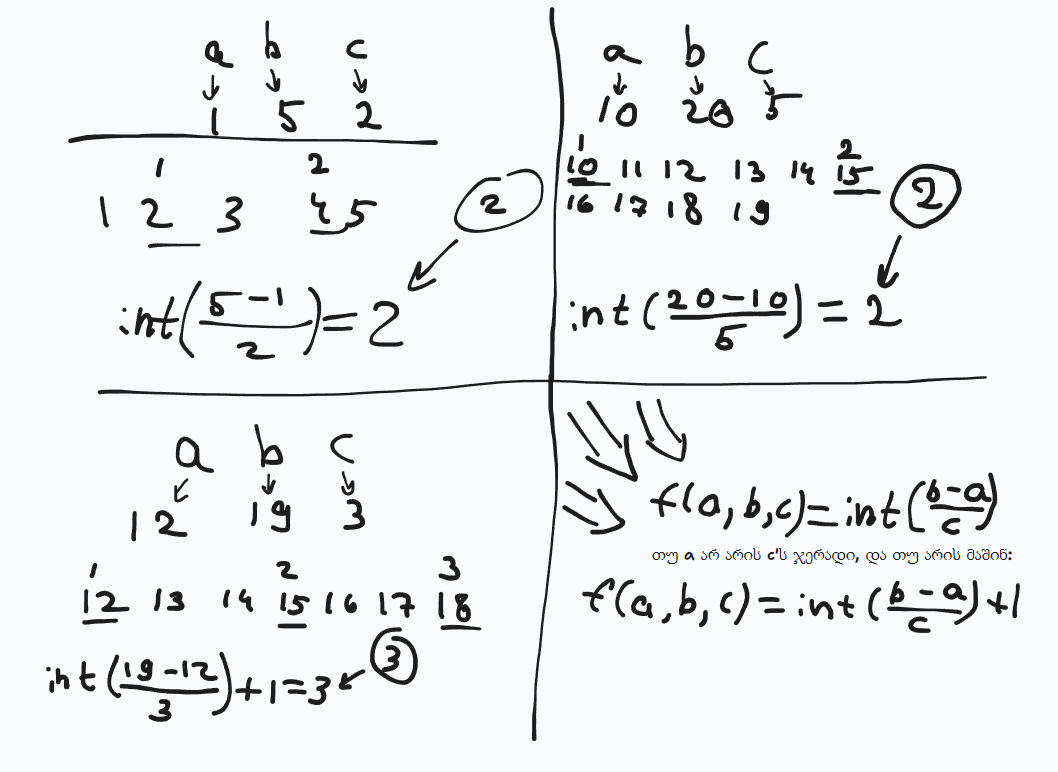 a b c
1 5 2
1 2
1 2 3 4 5
2
int(5-1/2)=2
a b c
10 20 5
1 2
10 11 12 13 14 15
16 17 18 19
2
int(20-10/5)=2
a b c
12 19 3
1 2 3
12 13 14 15 16 17 18
3
int(19-12/3)+1=3
f(a,b,c)=int(b-a/c)
თუ a არ არის c'ს ჯერადი, და თუ არის მაშინ:
f(a,b,c)=int(b-a/c)+1